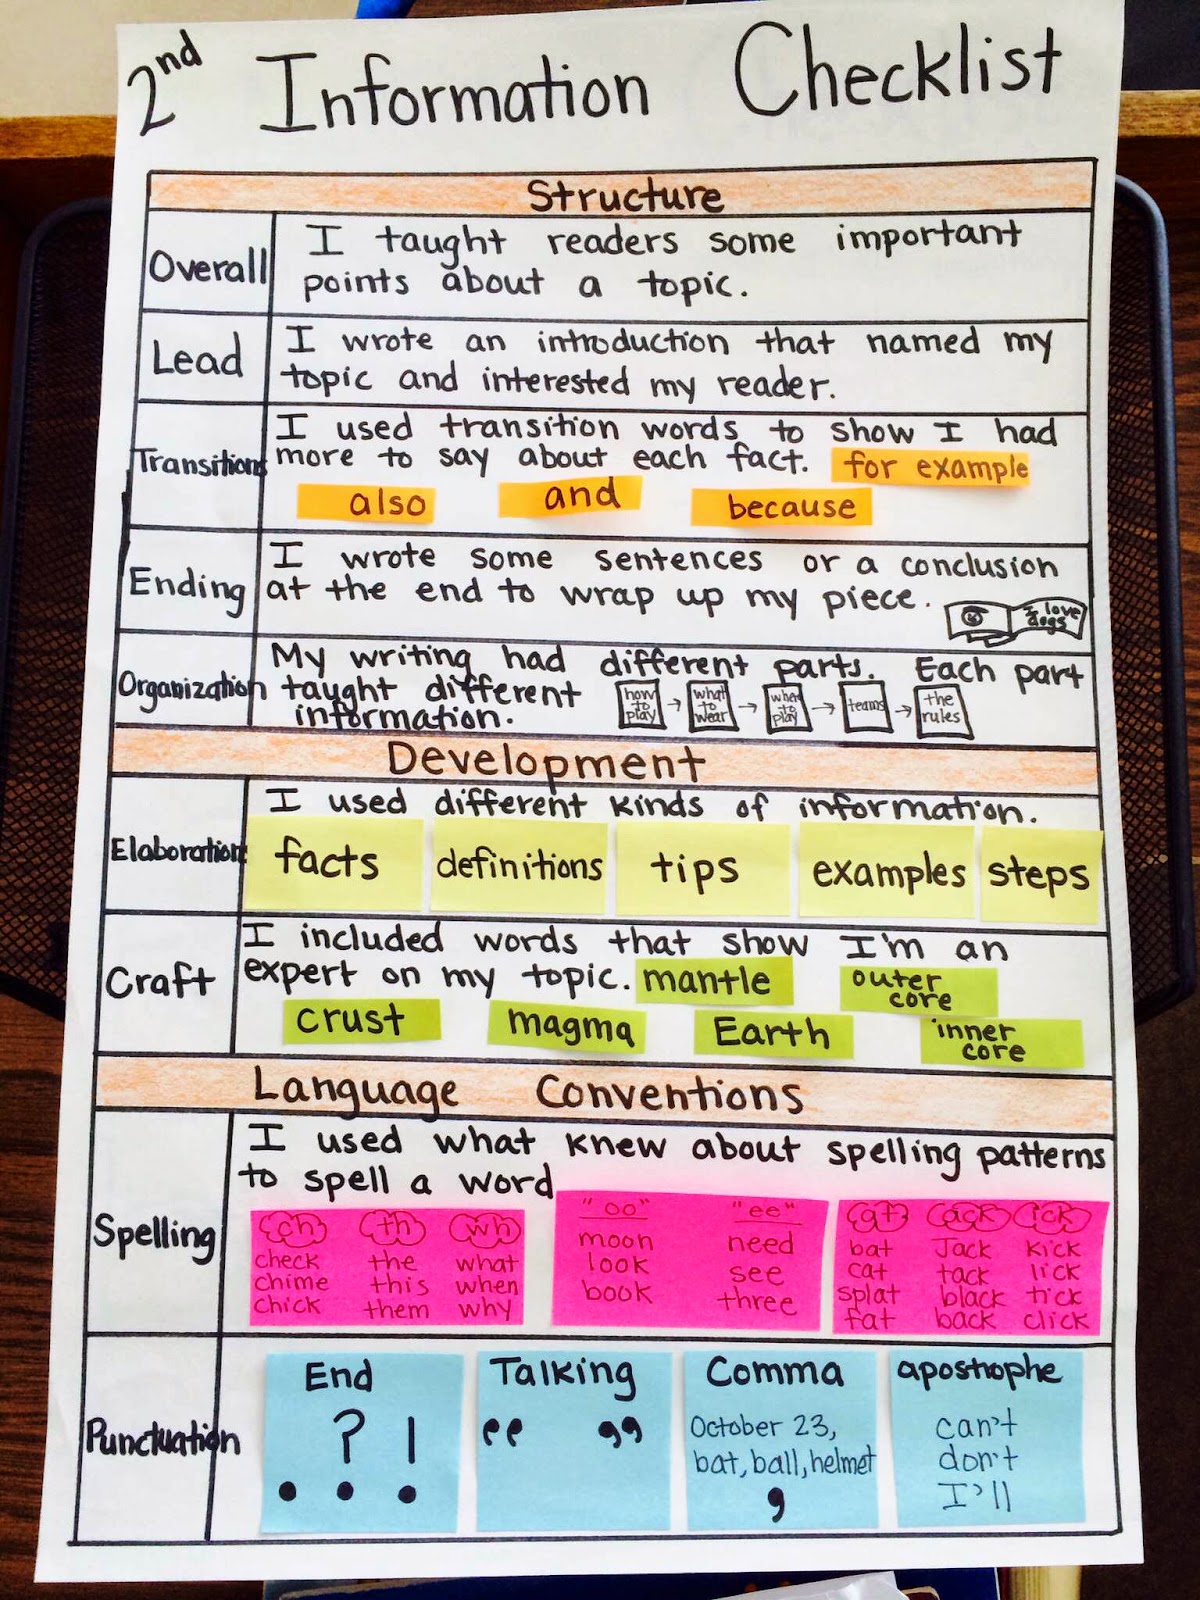 2nd Information Checklist
Structure
Overall
I taught readers some important
points about a topic.
Lead
I wrote an introduction that named my
topic and interested my reader.
Transitions
I used transition words to show I had
more to say about each fact. for example
also and because
Ending
I wrote some sentences or a conclusion
at the end to wrap up my piece.
I love
dogs
Organization
My writing had different parts. Each part
taught different
information.
how
to
play
what
to
wear
when
to
play
teams
the
rules
Development
Elaboration
I used different kinds of information.
facts definitions tips examples steps
Craft
I included words that show I'm an
expert on my topic. mantle outer
core
crust magma Earth inner
core
Language Conventions
Spelling
I used what knew about spelling patterns
to spell a word
ch th wh
check the what
chime this when
chick them why
"oo" "ee"
moon need
look see
book three
at ack ick
bat Jack kick
cat tack lick
splat black tick
fat back click
Punctuation
End
? !
.
Talking
“ ”
Comma
October 23,
bat, ball, helmet
,
apostrophe
can't
don't
I'll